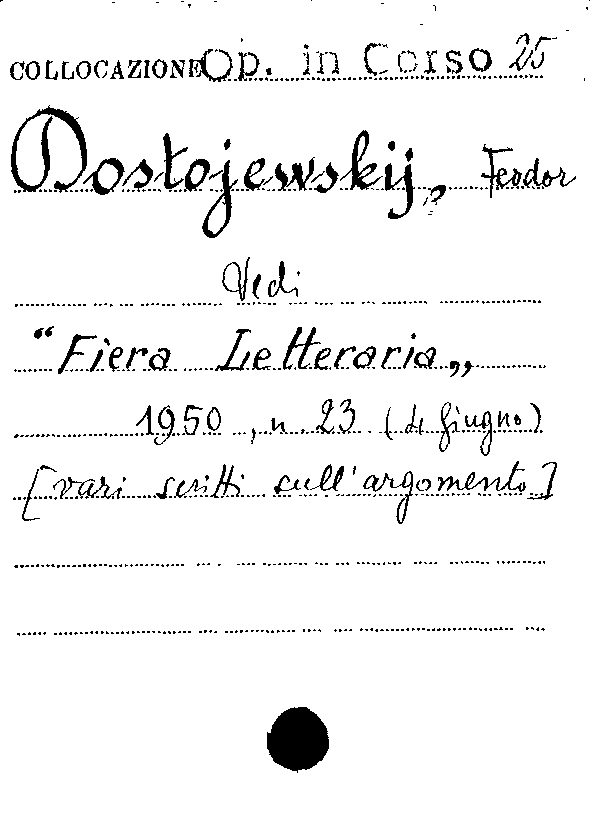 COLLOCAZIONE Op. in Corso 25
Dostojewskij, Feodor
Vedi
“Fiera Letteraria„
1950, n. 23 (4 giugno)
[vari scritti sull'argomento]